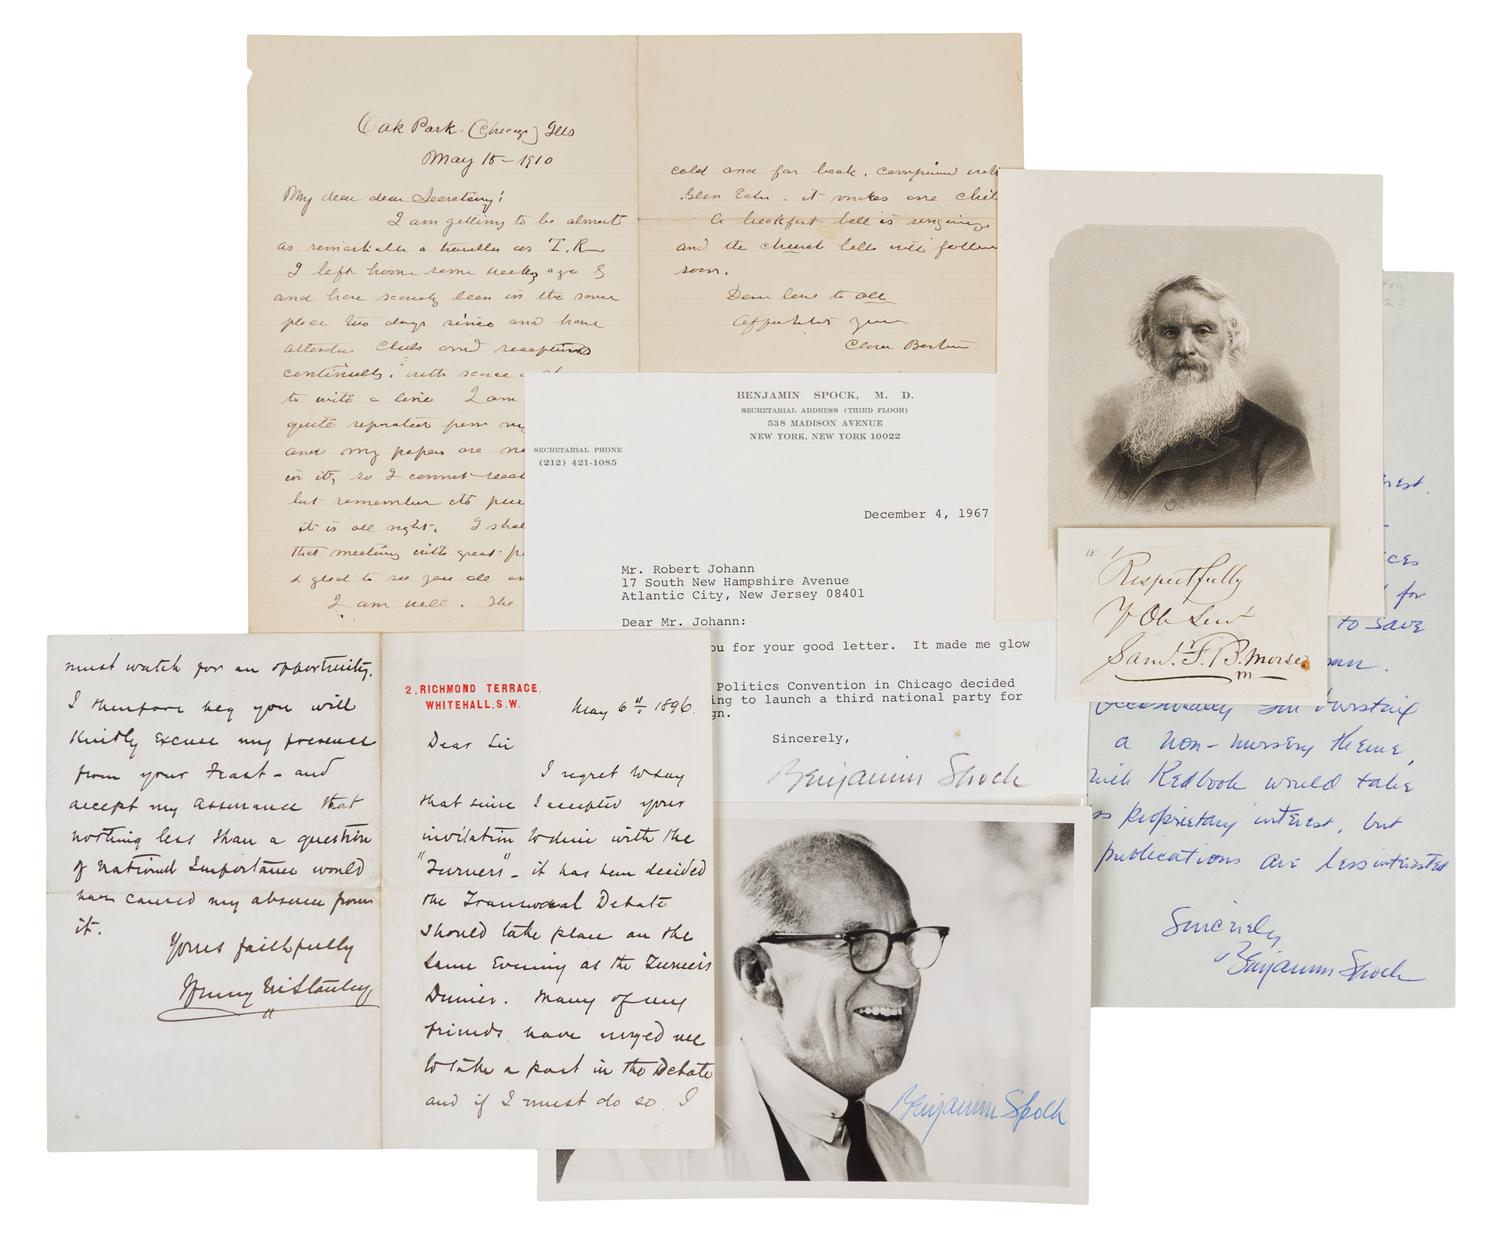 Oak Park - (Chicago) Ills
May 15 - 1910
My dear dear Secretary!
I am getting to be almost
as remarkable a traveller as T.R.
I left home some weeks ago &
and have scarcely been in the same
place two days since and have
attended Clubs and receptions
continually, with scarce
to write a line I am
quite
and my papers are
in it, so I cannot read
but remember its
it is all right. I shal
that meeting with great
& glad to see you all
I am well. The
cold and far back, compared with
Glen Echo. it makes one chil
A breakfast bell is ringing
and the church bells will follow
soon.
Dear love to all
Clara Barton
BENJAMIN SPOCK, M. D.
SECRETARIAL ADDRESS (THIRD FLOOR)
538 MADISON AVENUE
NEW YORK, NEW YORK 10022
SECRETARIAL PHONE
(212) 421-1085
December 4, 1967
Mr. Robert Johann
17 South New Hampshire Avenue
Atlantic City, New Jersey 08401
Dear Mr. Johann:
ou for your good letter. It made me glow
Politics Convention in Chicago decided
ing to launch a third national party for
gn.
Sincerely,
Benjamin Spock
15 1
Respectfully
Yr Ob Servt
Saml. F. B. Morse
to save
for
occasionally I'm bursting
a non-nursery theme,
Redbook would take
proprietary interest, but
publications are less interested
Sincerely,
Benjamin Spock
must watch for an opportunity.
I therefore beg you will
kindly excuse my presence
from your Feast - and
accept my assurance that
nothing less than a question
of national Importance would
have caused my absence from
it.
Yours faithfully
Henry M Stanley
2, RICHMOND TERRACE,
WHITEHALL, S.W.
May 6th 1896.
Dear Sir
I regret to say
that since I accepted your
invitation to dine with the
"Turners" - it has been decided
the Transvaal Debate
should take place on the
same Evening as the Turners
Dinner. Many of my
friends have urged me
to take a part in the Debate
and if I must do so, I
Benjamin Spock